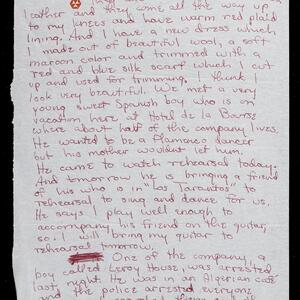 leather and they come all the way up
to my knees and have warm red plaid
lining. And I have a new dress which
I made out of beautiful wool, a soft
maroon color and trimmed with a
red and blue silk scarf which I cut
up and used for trimming. I think I
look very beautiful. We met a very
young sweet Spanish boy who is on
vacation here at Hotel de la Bourse
where about half of the company lives.
He wanted to be a flamenco dancer
but his mother wouldnt let him.
He came to watch rehearsal today.
And tomorrow he is bringing a friend
of his who is in "los Tarantos" to
rehearsal to sing and dance for us.
He says I play well enough to
accompany his friend on the guitar,
so I will bring my guitar to
rehearsal tomorrow.
One of the company, a
boy called Leroy House, was arrested
last night. He was in an Algerian cafe
and the police arrested everyone